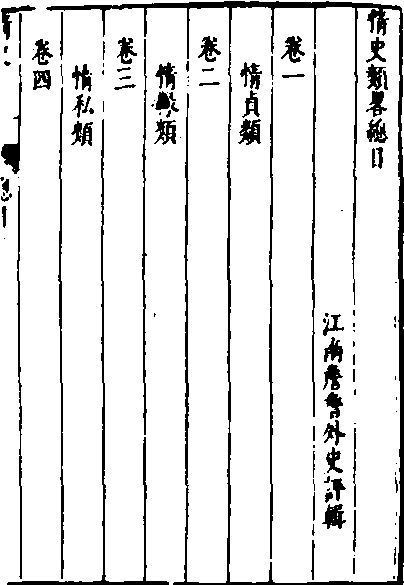 情史類畧總目
江南詹詹外史評輯
卷一
情貞類
卷二
情緣類
卷三
情私類
卷四